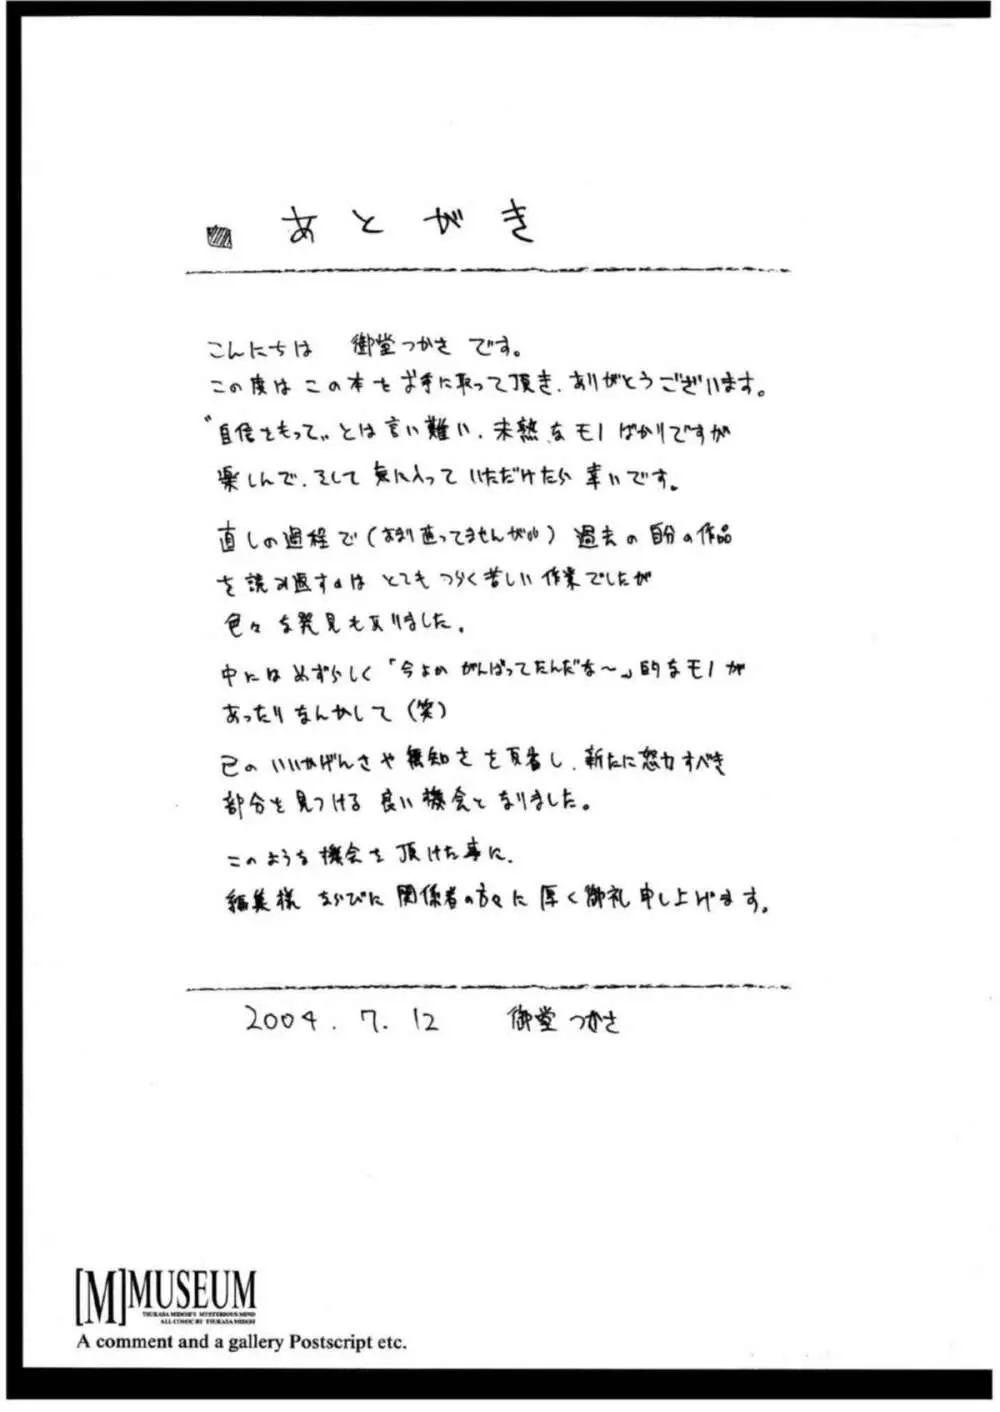 あとがき
こんにちは 御堂つかさ です。
この度は この本を お手に取って頂き、ありがとうございます。
"自信をもって"とは言い難い、未熟なモノばかりですが
楽しんで、そして 気に入って いただけたら 幸いです。
直しの過程で(あまり直ってませんが…) 過去の自分の作品
を読み返すのは とても つらく苦しい作業でしたが
色々な発見もありました。
中には めずらしく 「今よか がんばってたんだな〜」的なモノが
あったりなんかして(笑)
己の いいかげんさや無知さを反省し、新たに努力すべき
部分を見つける良い機会となりました。
このような機会を頂けた事に、
編集様 ならびに 関係者の方々に 厚く御礼申し上げます。
2004.7.12 御堂つかさ
[M]MUSEUM
TSUKASA MIDOH'S MYSTERIOUS MIND
ALL COMIC BY TSUKASA MIDOH
A comment and a gallery Postscript etc.